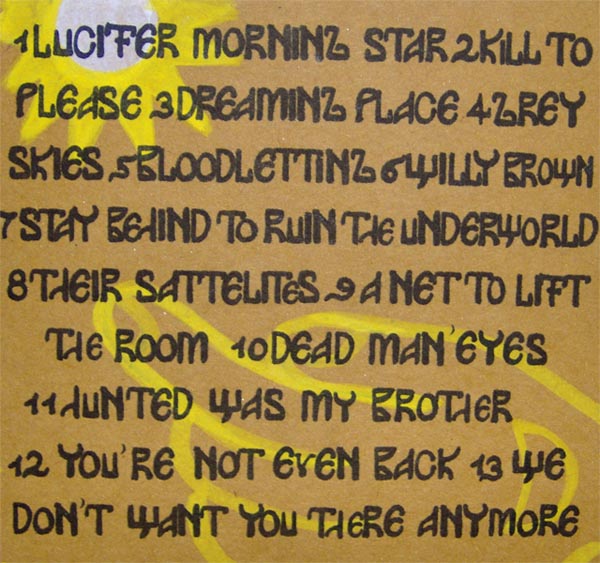 1 LUCIFER MORNING STAR 2 KILL TO
PLEASE 3 DREAMING PLACE 4 GREY
SKIES 5 BLOODLETTING 6 WILLY BROWN
7 STAY BEHIND TO RUIN THE UNDERWORLD
8 THEIR SATTELITeS 9 A NET TO LIFT
THE ROOM 10 DEAD MAN'EYES
11 HUNTED WAS MY BROTHER
12 YOU'RE NOT EVEN BACK 13 WE
DON'T WANT YOU THERE ANYMORE